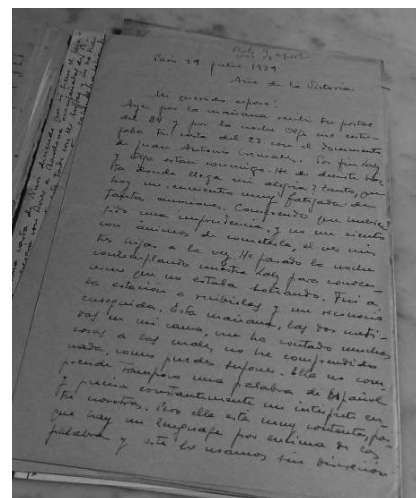 París 29 julio 1939
Año de la Victoria.
Mi querido esposo:
Ayer por la mañana recibí tu postal
del 24 y por la noche Olga me entre-
gaba tu carta del 23 con el documento
de Juan Antonio. Por fin Loly
y Olga están conmigo. He de decirte has-
ta donde llega mi alegría? Tanta, que
hoy me encuentro muy fatigada de
tantas emociones. Comprendo que hubie-
sido una imprudencia, y no me siento
con ánimos de cometerla, el ver mis
tres hijas a la vez. He pasado la noche
contemplando nuestra Loly para conven-
cerme que no estaba soñando. Fui a
la estación a recibirlas y me reconoció
enseguida. Esta mañana, las dos meti-
das en mi cama, me ha contado muchas
cosas a las cuales no he comprendido
nada, como puedes suponer. Ella no com-
prende tampoco una palabra de Español
y precisa constantemente un intérprete en-
tre nosotras. Pero ella está muy contenta, por-
que hay un lenguaje por encima de la
palabra y este lo usamos sin discreción